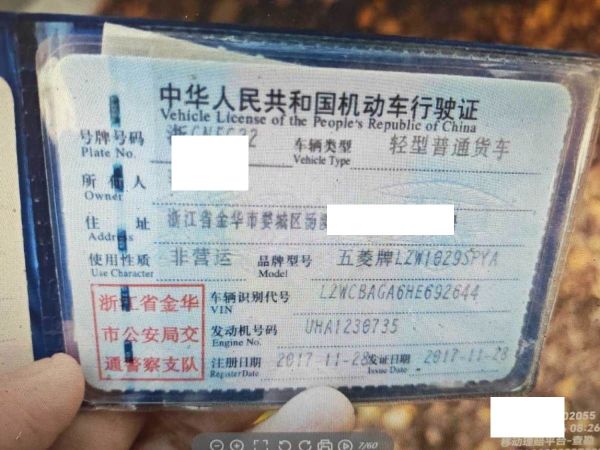 中华人民共和国机动车行驶证
Vehicle License of the People's Republic of China
号牌号码
Plate No.
车辆类型 轻型普通货车
Vehicle Type
所 有 人
Owner
住 址 浙江省金华市婺城区汤
Address
使用性质 非营运 品牌型号 五菱牌LZW1029SPYA
Use Character Model
浙江省金华
市公安局交
通警察支队
车辆识别代号 LZWCBAGA6HE692644
VIN
发动机号码 UHA1230735
Engine No.
注册日期 2017-11-28 发证日期 2017-11-28
Register Date Issue Date
02055
08:26
移动理赔平台-查勘
7/60